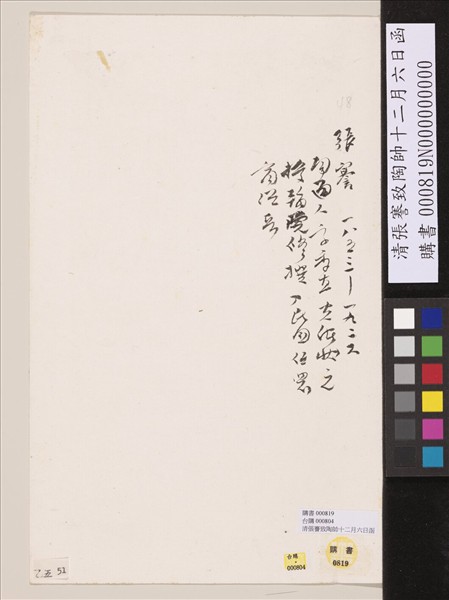 張謇 一八五三—一九二六
南通人字季直 光緒狀元
授翰院修撰 入民國任農
商總長
清張謇致陶帥十二月六日函
購書 000819N000000000
購書 000819
台購 000804
清張謇致陶帥十二月六日函
購書
0819
000804
51